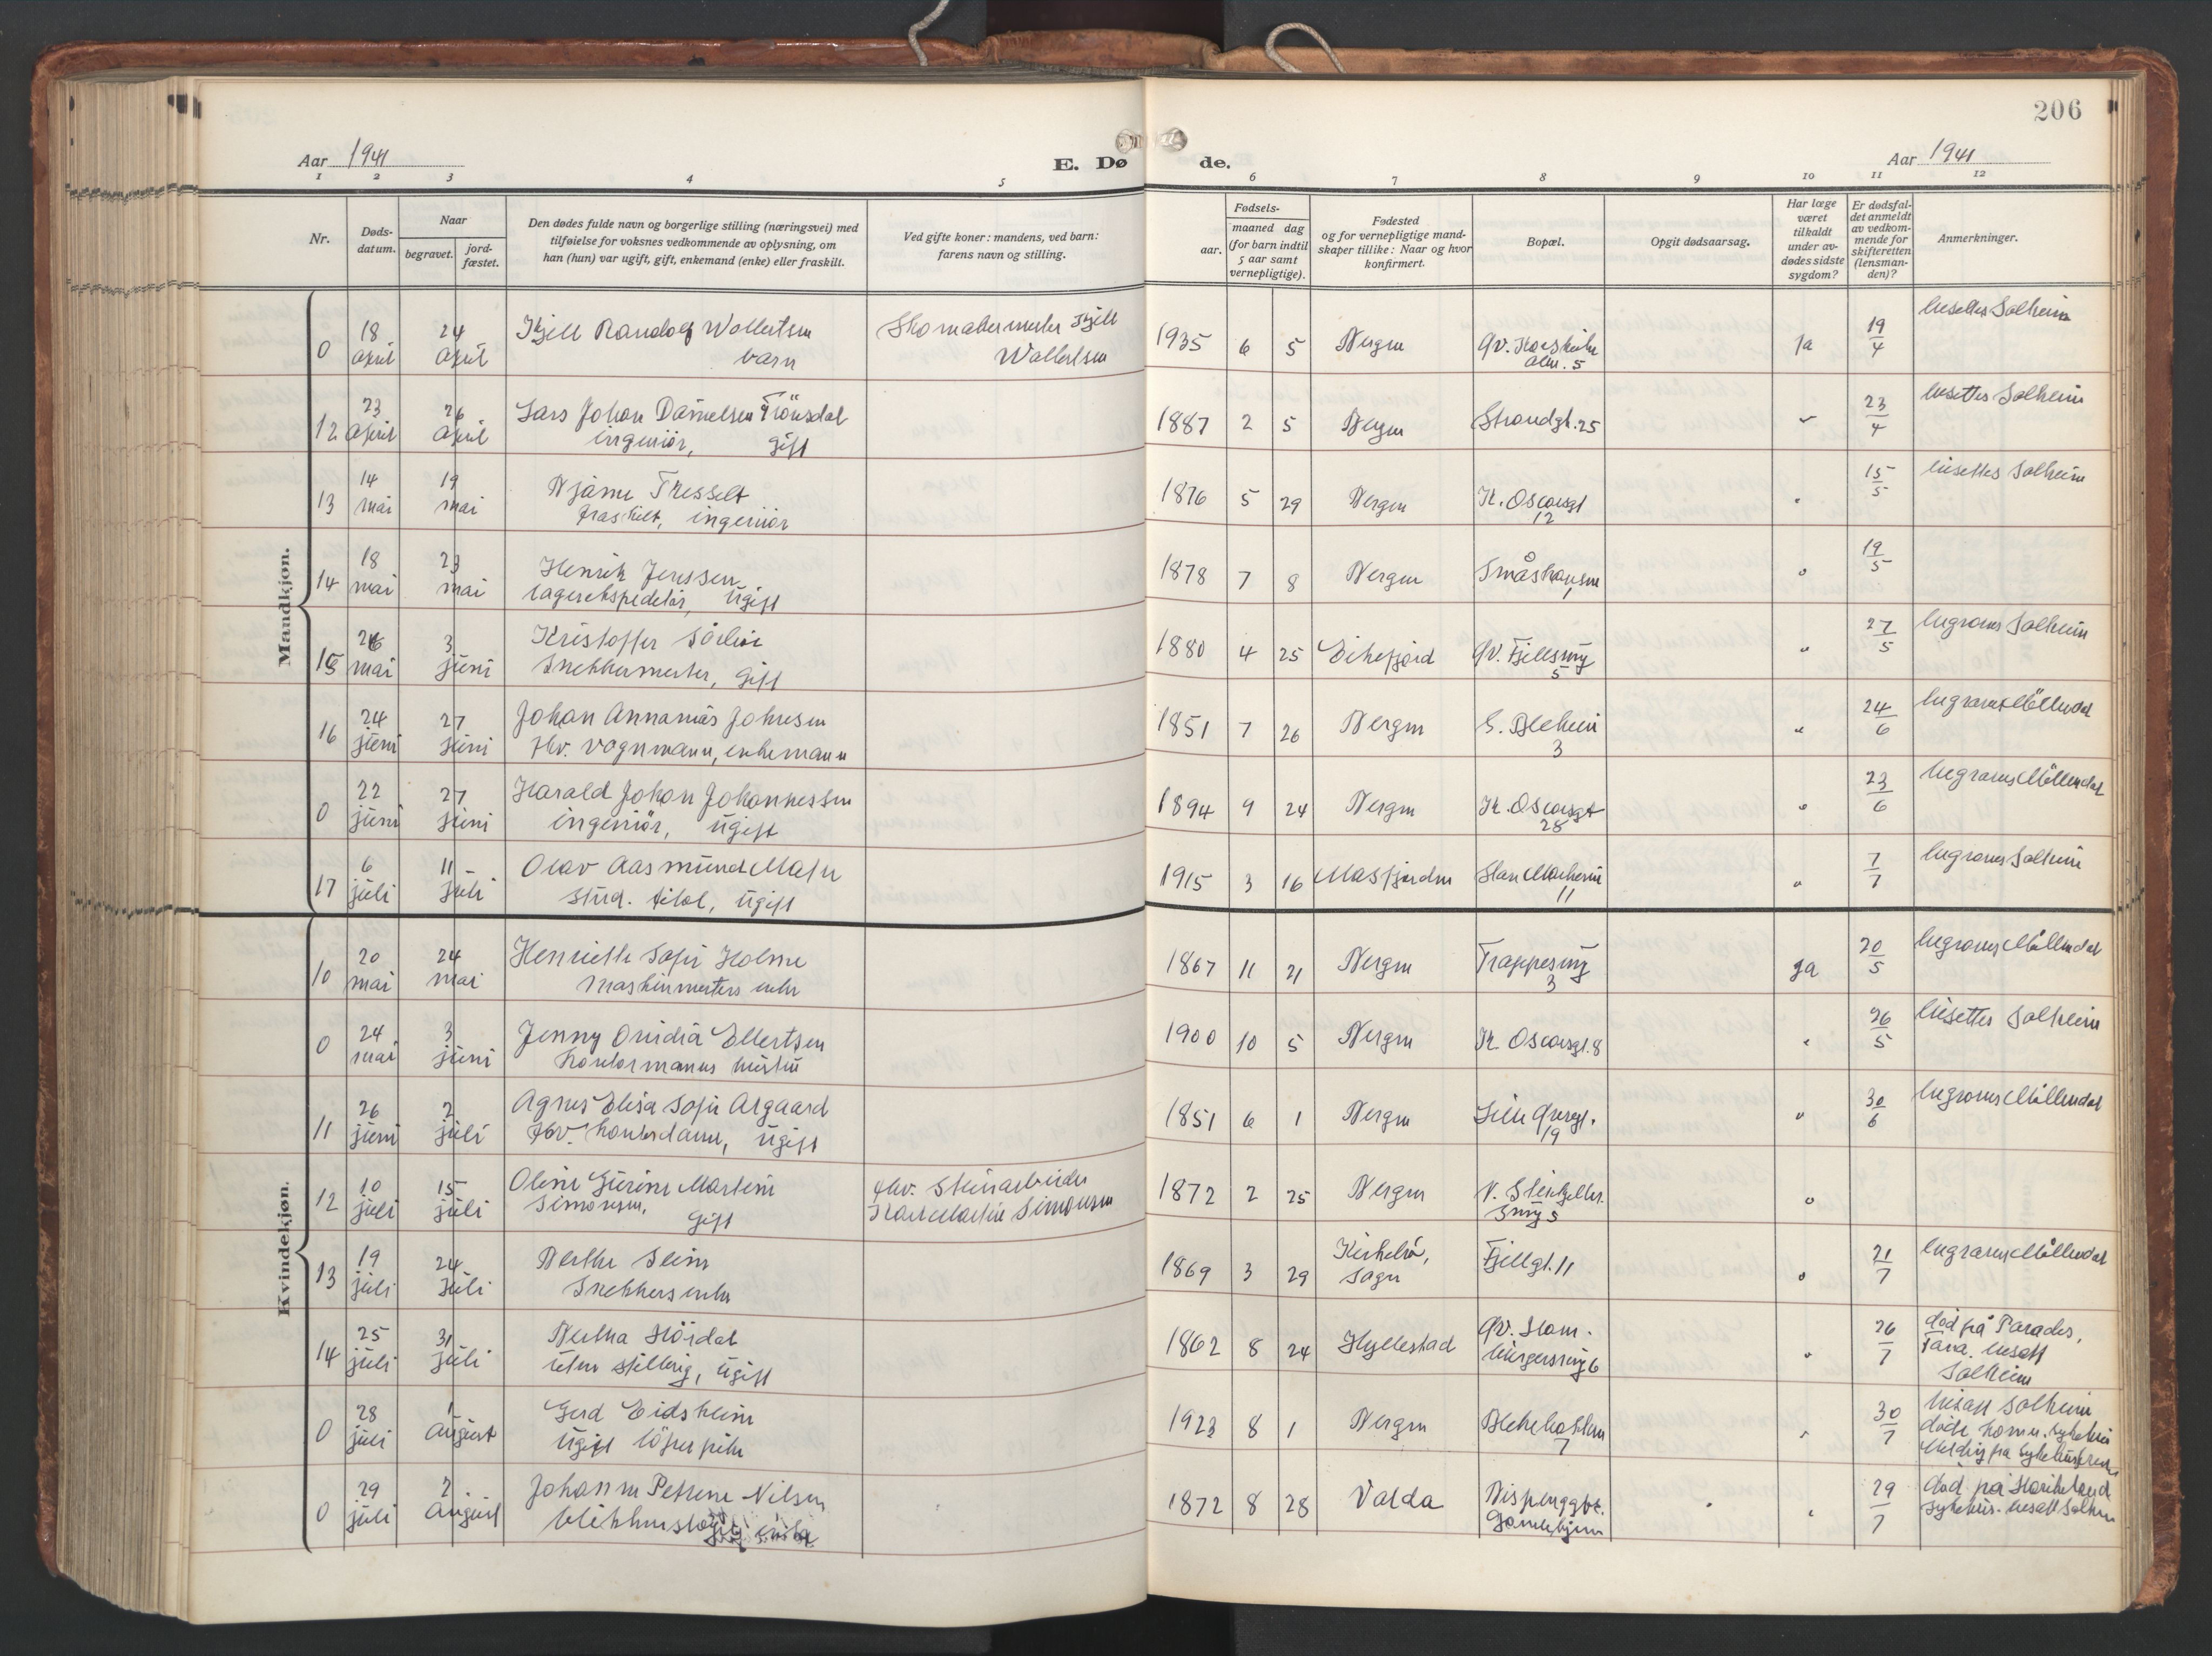 206
Aar 1941
E. Dø
de.
Aar 1941
1 2 3 4 5 6 7 8 9 10 11 12
Nr.
Døds-
datum.
Naar
begravet.
jord-
fæstet.
Den dødes fulde navn og borgerlige stilling (næringsvei) med
tilføielse for voksnes vedkommende av oplysning, om
han (hun) var ugift, gift, enkemand (enke) eller fraskilt.
Ved gifte koner: mandens, ved barn:
farens navn og stilling.
Fødsels-
aar.
maaned dag
(for barn indtil
5 aar samt
vernepligtige).
Fødested
og for vernepligtige mand-
skaper tillike: Naar og hvor
konfirmert.
Bopæl.
Opgit dødsaarsag.
Har læge
været
tilkaldt
under av-
dødes sidste
sygdom?
Er dødsfal-
det anmeldt
av vedkom-
mende for
skifteretten
(lensman-
den)?
Anmerkninger.
Mandkjøn.
0 18 april 24 april Kjell Randolf Wollertsen
barn
Skomakermester Kjell
Wollertsen
1935 6 5 Bergen
alm. 5
Ja 19/4 bisettes Solheim
12 23 april 26 april Lars Johan Danielsen Trönsdal
ingeniör, gift
1887 2 5 Bergen Strandgt. 25 23/4 bisettes Solheim
13 14 mai 19 mai Bjarne Tresselt
fraskilt, ingeniör
1876 5 29 Bergen K. Oscarsgt
12
15/5 bisettes Solheim
14 18 mai 23 mai Henrik Jenssen
lagerekspeditör, ugift
1878 7 8 Bergen 19/5
15 26 mai 3 juni Kristoffer
Snekkermester, gift
1880 4 25 Eikefjord Øv. Fjellsmug
5
27/5 begraves Solheim
16 24 juni 27 juni Johan Annanias Johnsen
fhv. vognmann, enkemann
1851 7 26 Bergen
3
24/6 begraves Möllendal
0 22 juni 27 juni Harald Johan Johannessen
ingeniör, ugift
1894 9 24 Bergen K. Oscarsgt
28
23/6 begraves Möllendal
17 6 juli 11 juli Olav Aasmund
stud. filol, ugift
1915 3 16 Masfjorden
11
7/7 begraves Solheim
Kvindekjøn.
10 20 mai 24 mai Henriette Sofie Holme
Maskinmesters enke
1867 11 21 Bergen Trappesmug
3
Ja 20/5 begraves Möllendal
0 24 mai 3 juni Jenny Ovidia Ellertsen
Kontormanns hustru
1900 10 5 Bergen K. Oscarsgt. 8 26/5 bisettes Solheim
11 26 juni 2 juli Agnes Elisa Sofie Asgaard
fhv. kontordame, ugift
1851 6 1 Bergen Lille Øvregt.
19
30/6 begraves Möllendal
12 10 juli 15 juli Oline Martine
Simonsen, gift
fhv. Steinarbeider
Karl Martin Simonsen
1872 2 25 Bergen
smug 5
13 19 juli 24 juli Berthe Seim
Snekkers enke
1869 3 29 Kirkebø,
Sogn
Fjellgt. 11 21/7 begraves Möllendal
14 25 juli 31 juli Bertha
uten stilling, ugift
1862 8 24 Hyllestad 26/7 död på Paradis,
Fana. bisatt
Solheim
0 28 juli 1 august Gerd Eidsheim
ugift löperpike
1923 8 1 Bergen Blekebakken
7
30/7 bisatt Solheim
0 29 juli 2 august Johanne Petrene Nilsen
1872 8 28 Valda 29/7 död på Haukeland
Sykehus. bisatt Solheim